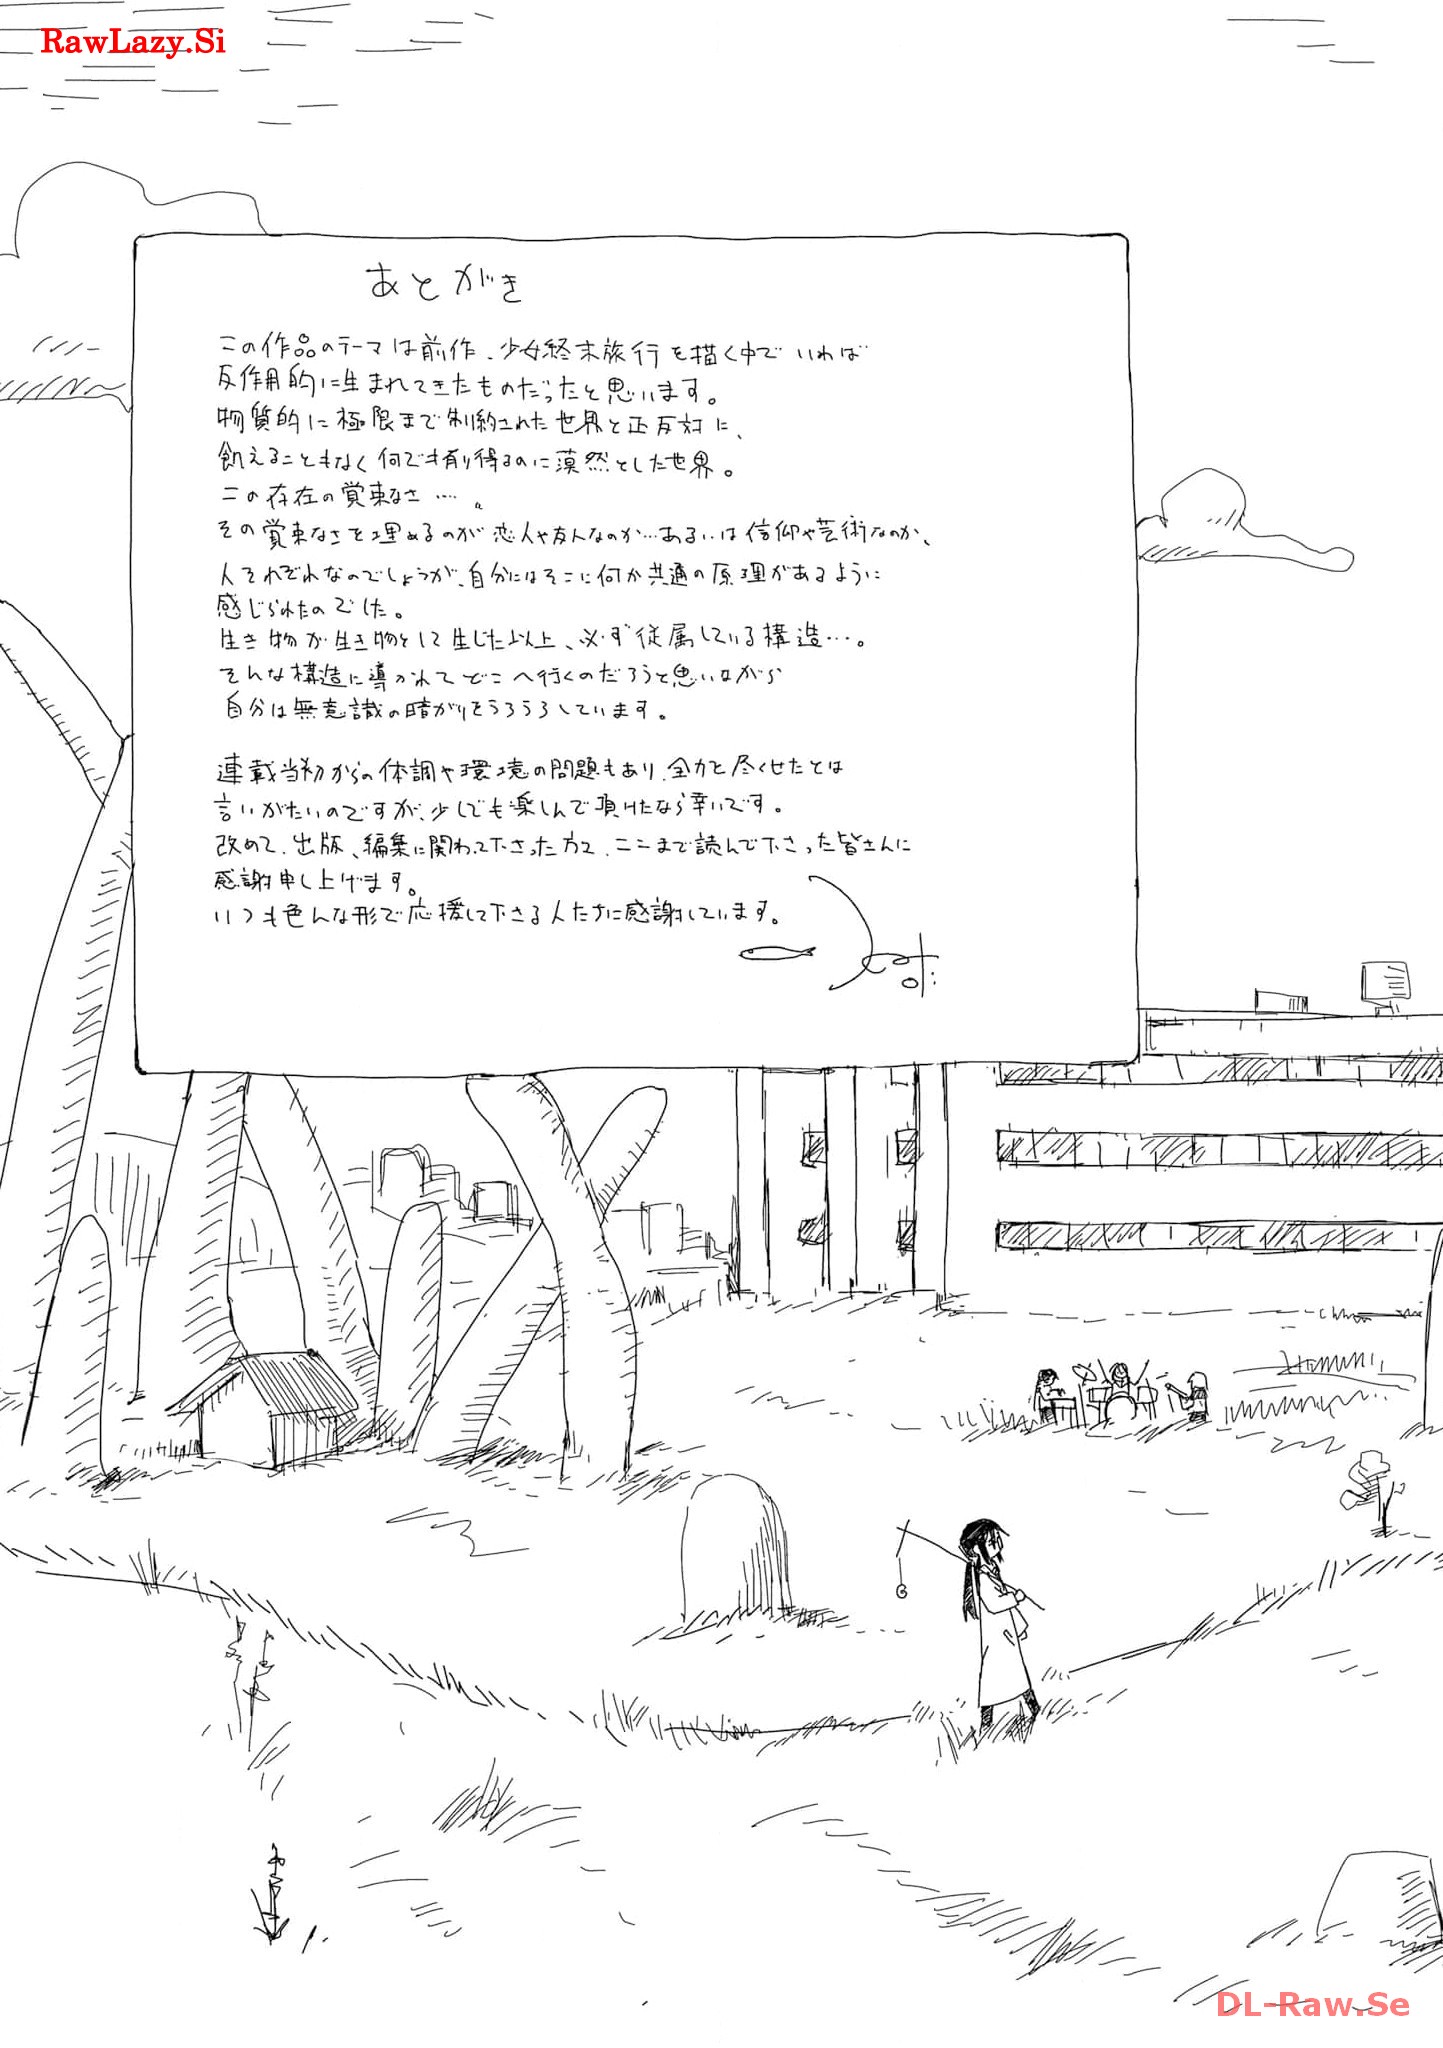 RawLazy.Si
あとがき
この作品のテーマは前作、少女終末旅行を描く中でいわば
反作用的に生まれてきたものだったと思います。
物質的に極限まで制約された世界と正反対に、
飢えることもなく何でも有り得るのに漠然とした世界。
この存在の覚束なさ…。
その覚束なさを埋めるのが恋人や友人なのか…あるいは信仰や芸術なのか、
人それぞれなのでしょうが、自分にはそこに何か共通の原理があるように
感じられたのでした。
生き物が生き物として生じた以上、必ず従属している構造…。
そんな構造に導かれてどこへ行くのだろうと思いながら
自分は無意識の暗がりをうろうろしています。
連載当初からの体調や環境の問題もあり、全力を尽くせたとは
言いがたいのですが、少しでも楽しんで頂けたなら幸いです。
改めて、出版、編集に関わって下さった方々、ここまで読んで下さった皆さんに
感謝申し上げます。
いつも色んな形で応援して下さる人たちに感謝しています。
DL-Raw.Se